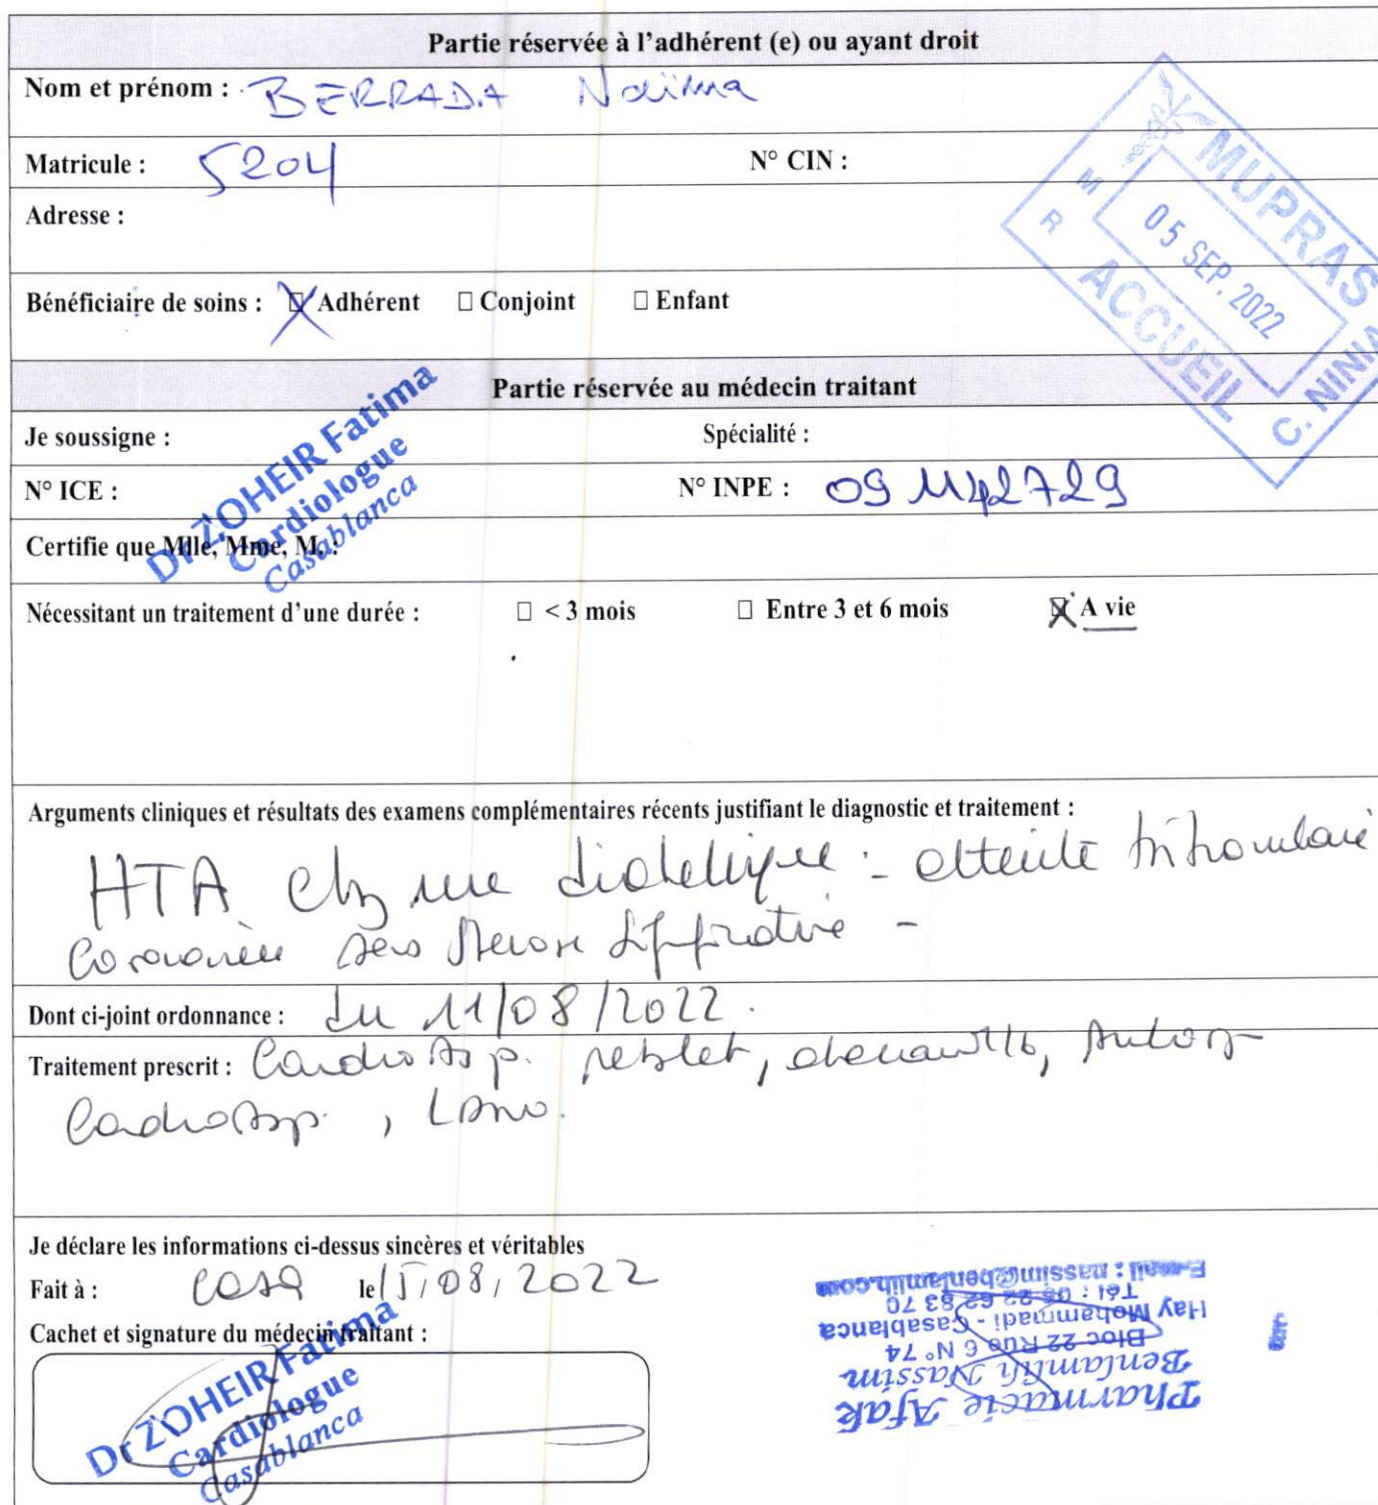 Partie réservée à l'adhérent (e) ou ayant droit
Nom et prénom : BERRADA Naïma
Matricule : 5204 N° CIN :
Adresse :
Bénéficiaire de soins : ☒ Adhérent □ Conjoint □ Enfant
MUPRAS
05 SEP. 2022
ACCUEIL
M
R
C. NINIA
Partie réservée au médecin traitant
Je soussigne : Spécialité :
N° ICE : N° INPE :
Certifie que Mlle, Mme, M. :
Dr ZOHEIR Fatima
Cardiologue
Casablanca
Nécessitant un traitement d'une durée : □ < 3 mois □ Entre 3 et 6 mois ☒ A vie
Arguments cliniques et résultats des examens complémentaires récents justifiant le diagnostic et traitement :
HTA chez une diabétique : atteinte tritronculaire
coronarienne sans
Dont ci-joint ordonnance : du 11/08/2022.
Traitement prescrit : CardioAsp.
CardioAsp.,
Je déclare les informations ci-dessus sincères et véritables
Fait à : Casa le 15/08/2022
Cachet et signature du médecin traitant :
Dr ZOHEIR Fatima
Cardiologue
Casablanca
Pharmacie Afak
Benlamlih Nassim
Bloc 22 Rue 6 N° 74
Hay Mohammadi - Casablanca
Tél : 05 22 62 83 70
E-mail : nassim@benlamlih.com